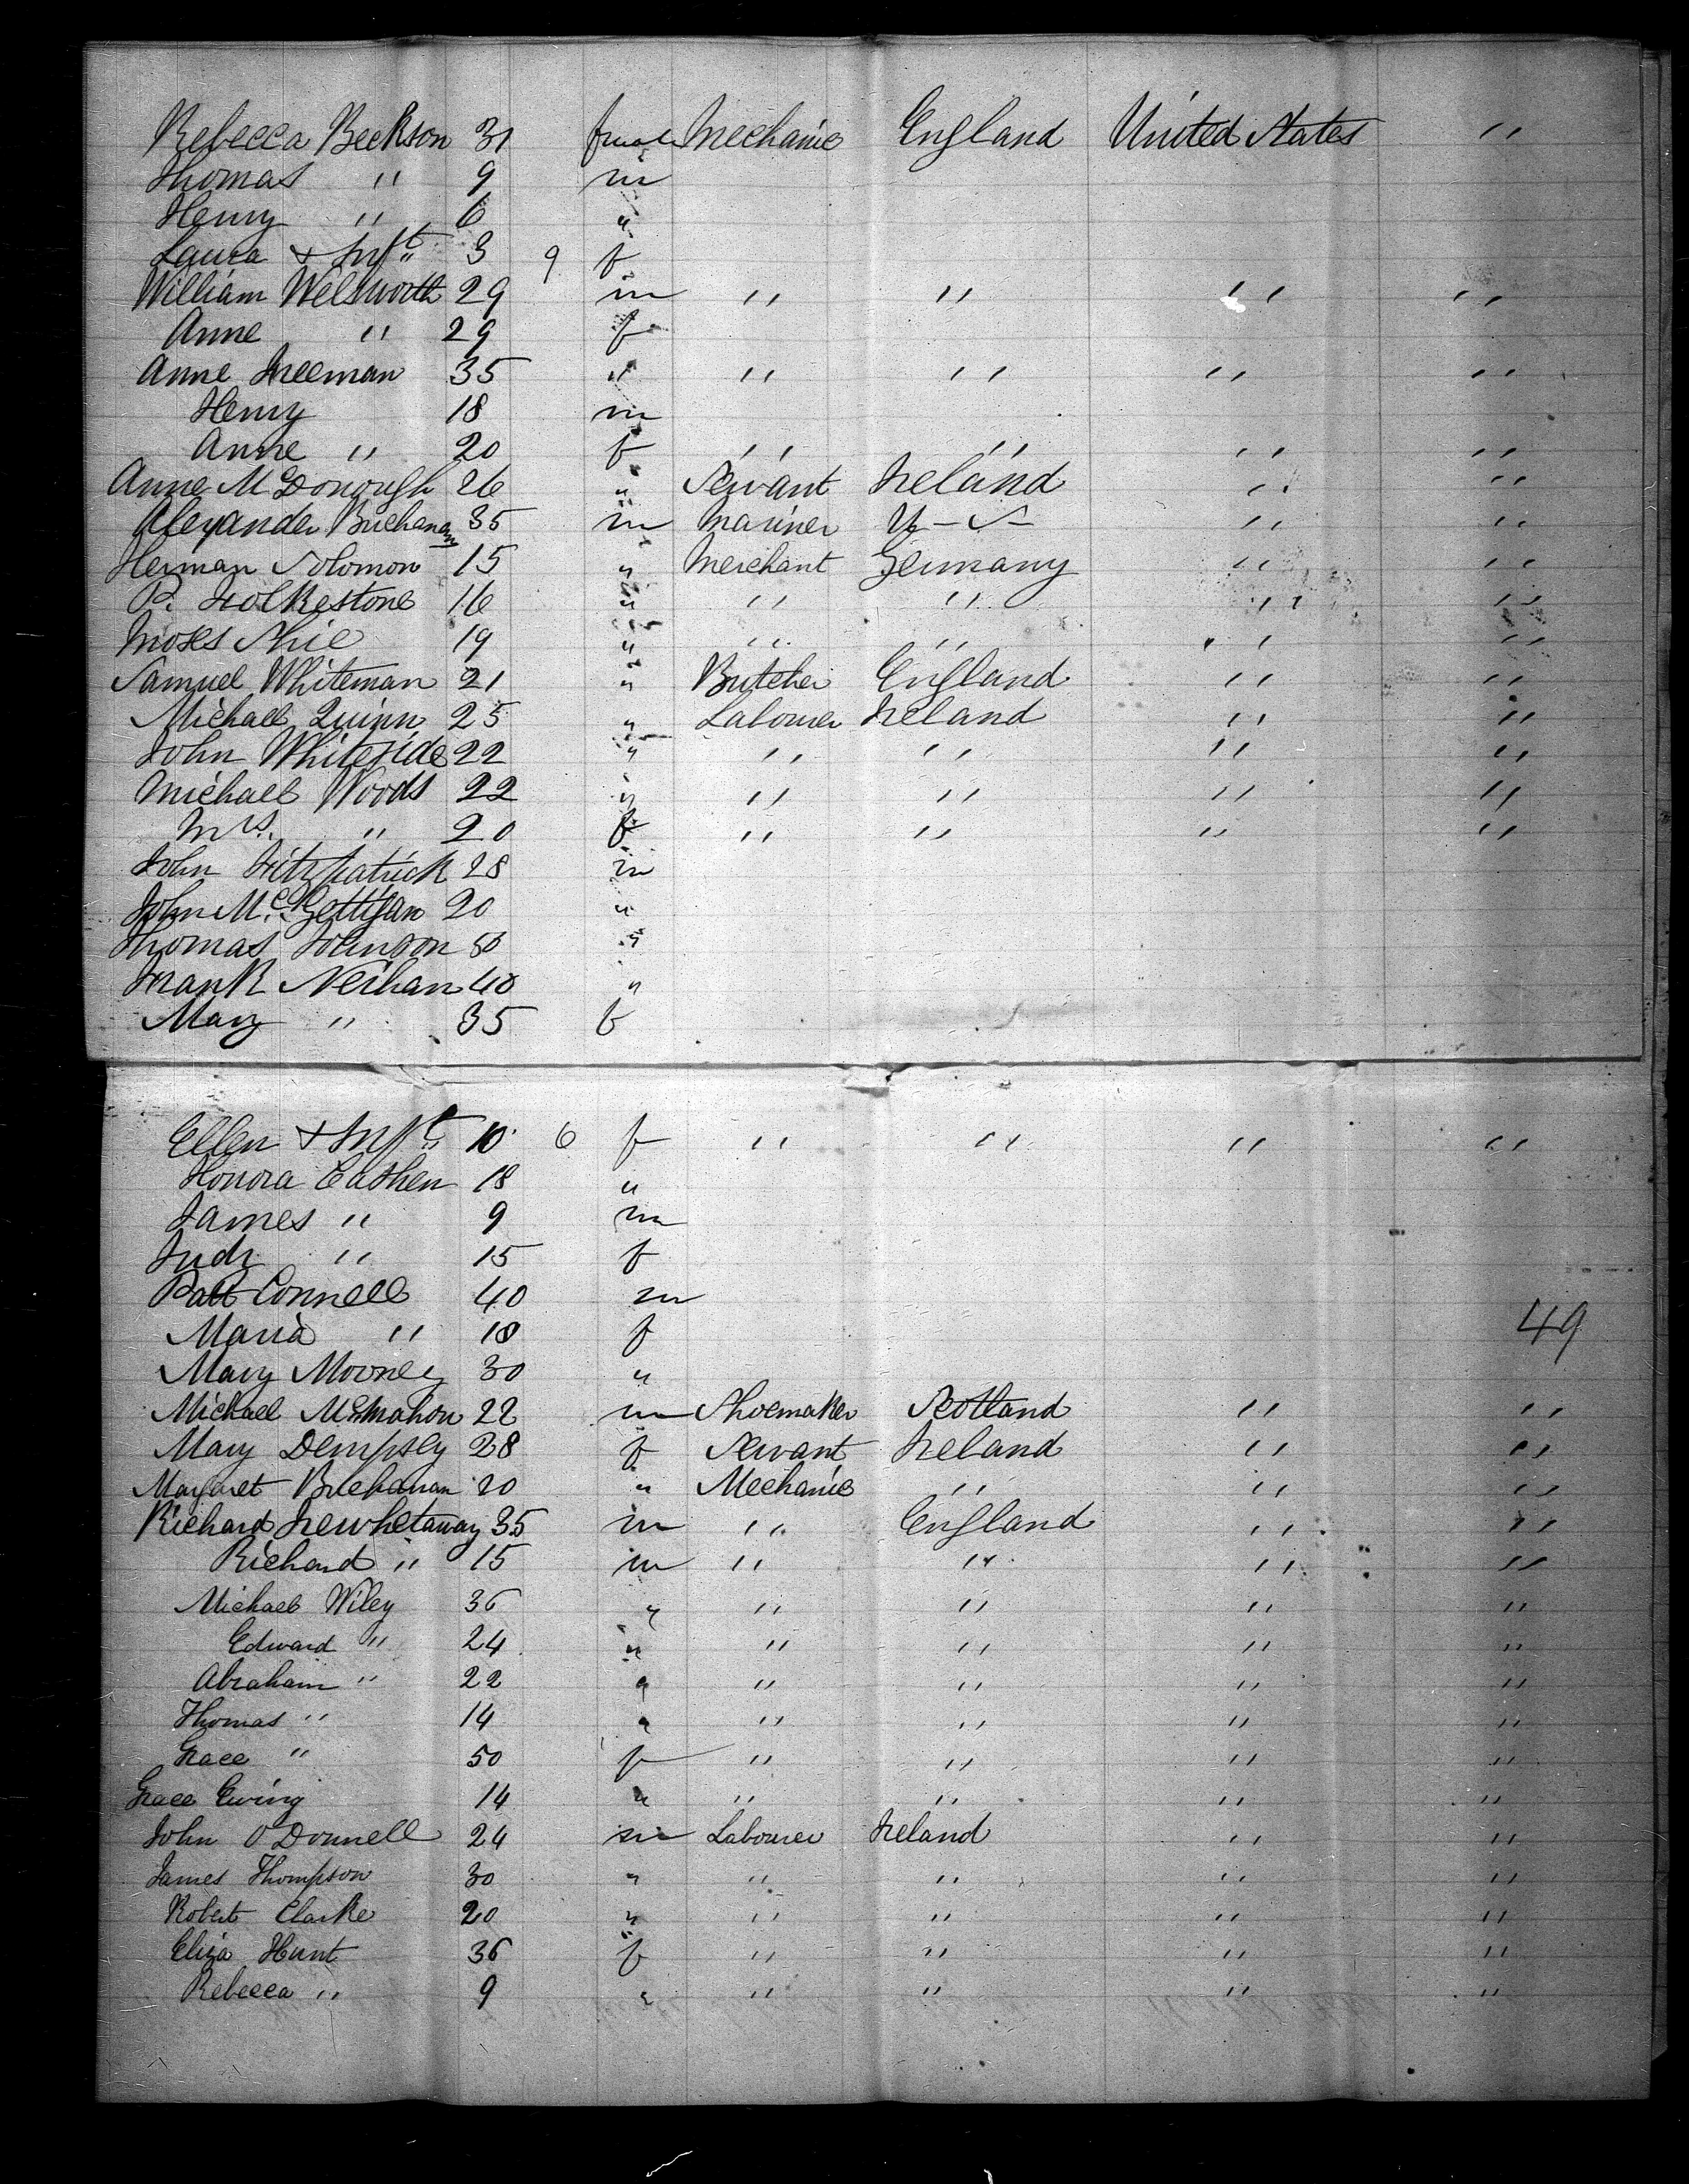 Rebecca Beckson 31 female Mechanic England United States "
Thomas " 9 m
Henry " 6 "
Laura & Inft " 3 9 f
William Welsworth 29 m " " " "
Anne " 29 f
Anne Freeman 35 " " " " "
Henry 18 m
Anne " 20 f " " " "
Anne McDonough 26 " Servant Ireland " "
Alexander Buchanan 35 m Mariner U-S- " "
Herman Solomon 15 " Merchant Germany " "
P. Folkestone 16 " " " " "
Moses 19 " " " " "
Samuel Whiteman 21 " Butcher England " "
Michael Quinn 25 " Labourer Ireland " "
John Whiteside 22 " " " " "
Michael Woods 22 " " " " "
Mrs. " 20 f " " " "
John Fitzpatrick 28 m
John McGettigan 20 "
Thomas Johnson "
Frank Neihan 40 "
Mary " 35 f
Ellen & Inft " 10 6 f " " " "
Honora Cashen 18 "
James " 9 m
Judy " 15 f
Patt Connell 40 m
Maria " 18 f
49
Mary Mooney 30 "
Michael McMahon 22 m Shoemaker Scotland " "
Mary Dempsey 28 f Servant Ireland " "
Margaret Buchanan 20 " Mechanic " " "
Richard 35 m " England " "
Richard " 15 m " " " "
Michael Wiley 36 " " " " "
Edward " 24 " " " " "
Abraham " 22 " " " " "
Thomas " 14 " " " " "
Grace " 50 f " " " "
Grace Ewing 14 " " " " "
John O'Donnell 24 m Labourer Ireland " "
James Thompson 30 " " " " "
Robert Clarke 20 " " " " "
Eliza Hunt 36 f " " " "
Rebecca " 9 " " " " "